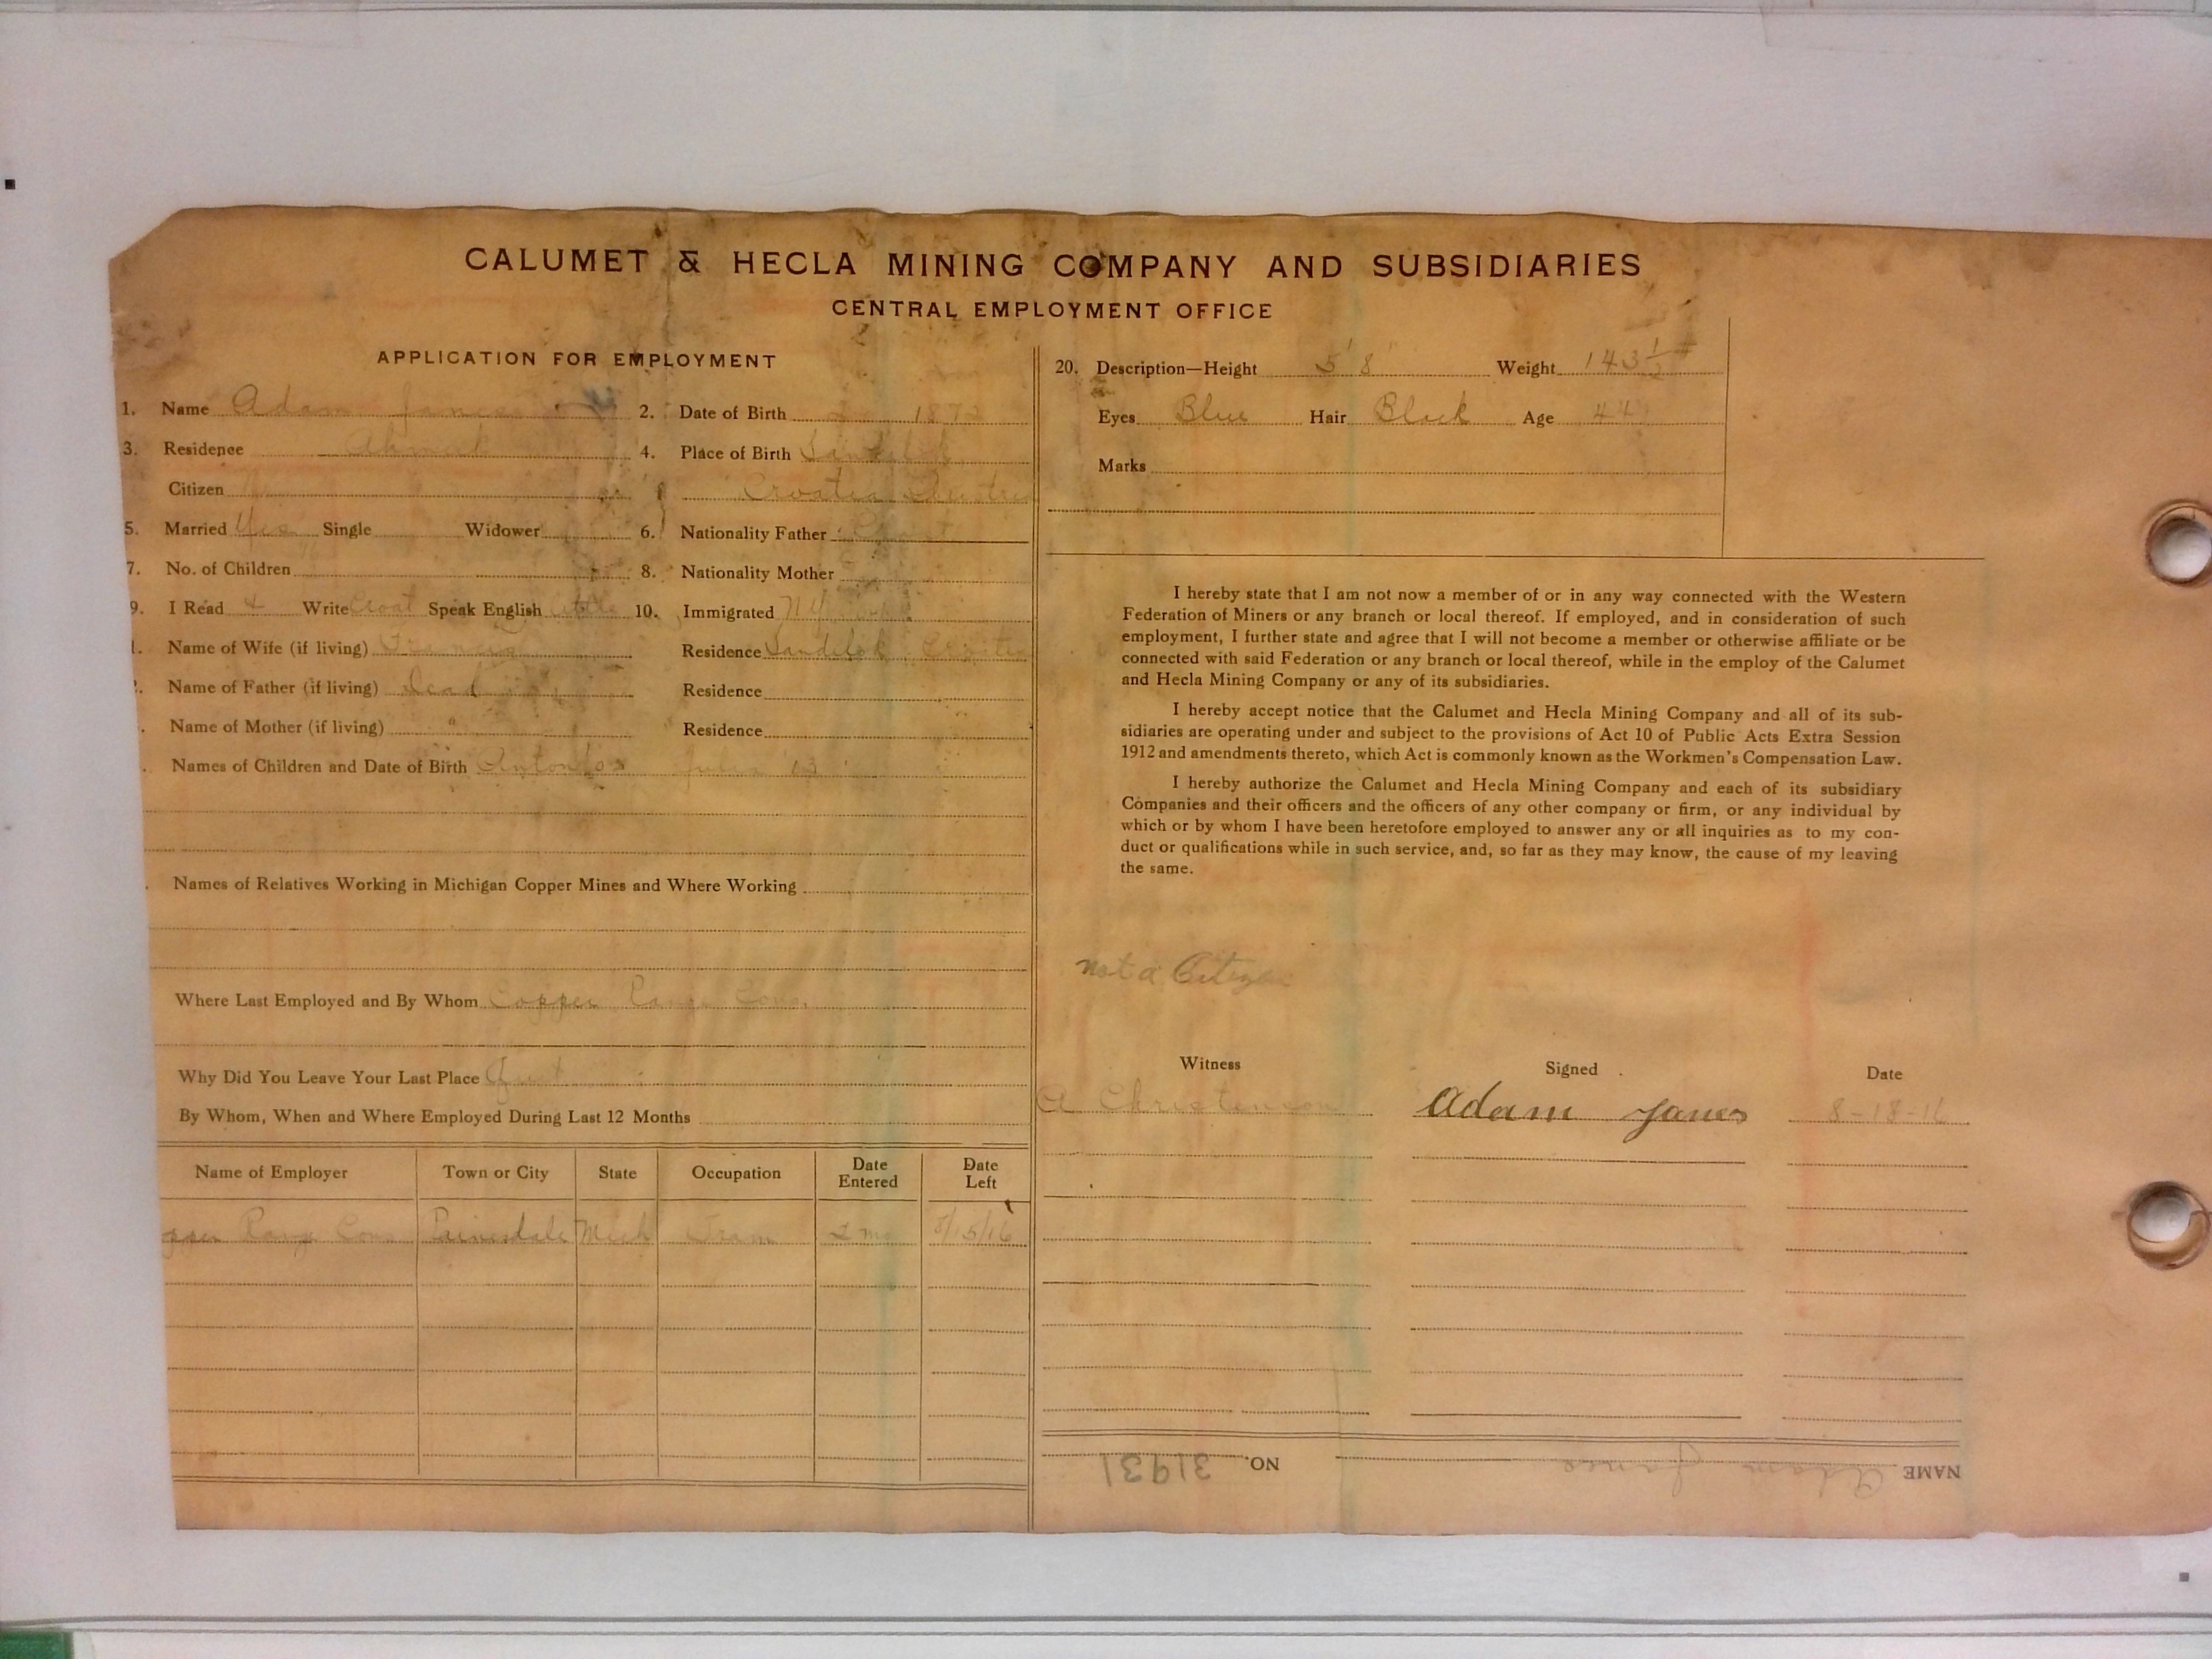 CALUMET & HECLA MINING COMPANY AND SUBSIDIARIES
CENTRAL EMPLOYMENT OFFICE
APPLICATION FOR EMPLOYMENT
1. Name Adam Janes
2. Date of Birth 1872
3. Residence Ahmeek
4. Place of Birth
Citizen
Croatia Austria
5. Married Yes Single Widower
6. Nationality Father
7. No. of Children
8. Nationality Mother
9. I Read & Write Croat Speak English Little
10. Immigrated
Name of Wife (if living)
Residence Sandilok Croatia
Name of Father (if living) Dead
Residence
Name of Mother (if living) "
Residence
Names of Children and Date of Birth Anton
Names of Relatives Working in Michigan Copper Mines and Where Working
Where Last Employed and By Whom Copper Range Cons.
Why Did You Leave Your Last Place Quit
By Whom, When and Where Employed During Last 12 Months
Name of Employer Town or City State Occupation Date Entered Date Left
pper Range Cons Painesdale Mich Tram 2 mo 8/15/16
20. Description—Height 5' 8" Weight 143 1/2 #
Eyes Blue Hair Black Age 44
Marks
I hereby state that I am not now a member of or in any way connected with the Western
Federation of Miners or any branch or local thereof. If employed, and in consideration of such
employment, I further state and agree that I will not become a member or otherwise affiliate or be
connected with said Federation or any branch or local thereof, while in the employ of the Calumet
and Hecla Mining Company or any of its subsidiaries.
I hereby accept notice that the Calumet and Hecla Mining Company and all of its sub-
sidiaries are operating under and subject to the provisions of Act 10 of Public Acts Extra Session
1912 and amendments thereto, which Act is commonly known as the Workmen's Compensation Law.
I hereby authorize the Calumet and Hecla Mining Company and each of its subsidiary
Companies and their officers and the officers of any other company or firm, or any individual by
which or by whom I have been heretofore employed to answer any or all inquiries as to my con-
duct or qualifications while in such service, and, so far as they may know, the cause of my leaving
the same.
not a Citizen
Witness Signed Date
A Christenson Adam Janes 8-18-16
NAME Adam Janes NO. 31931